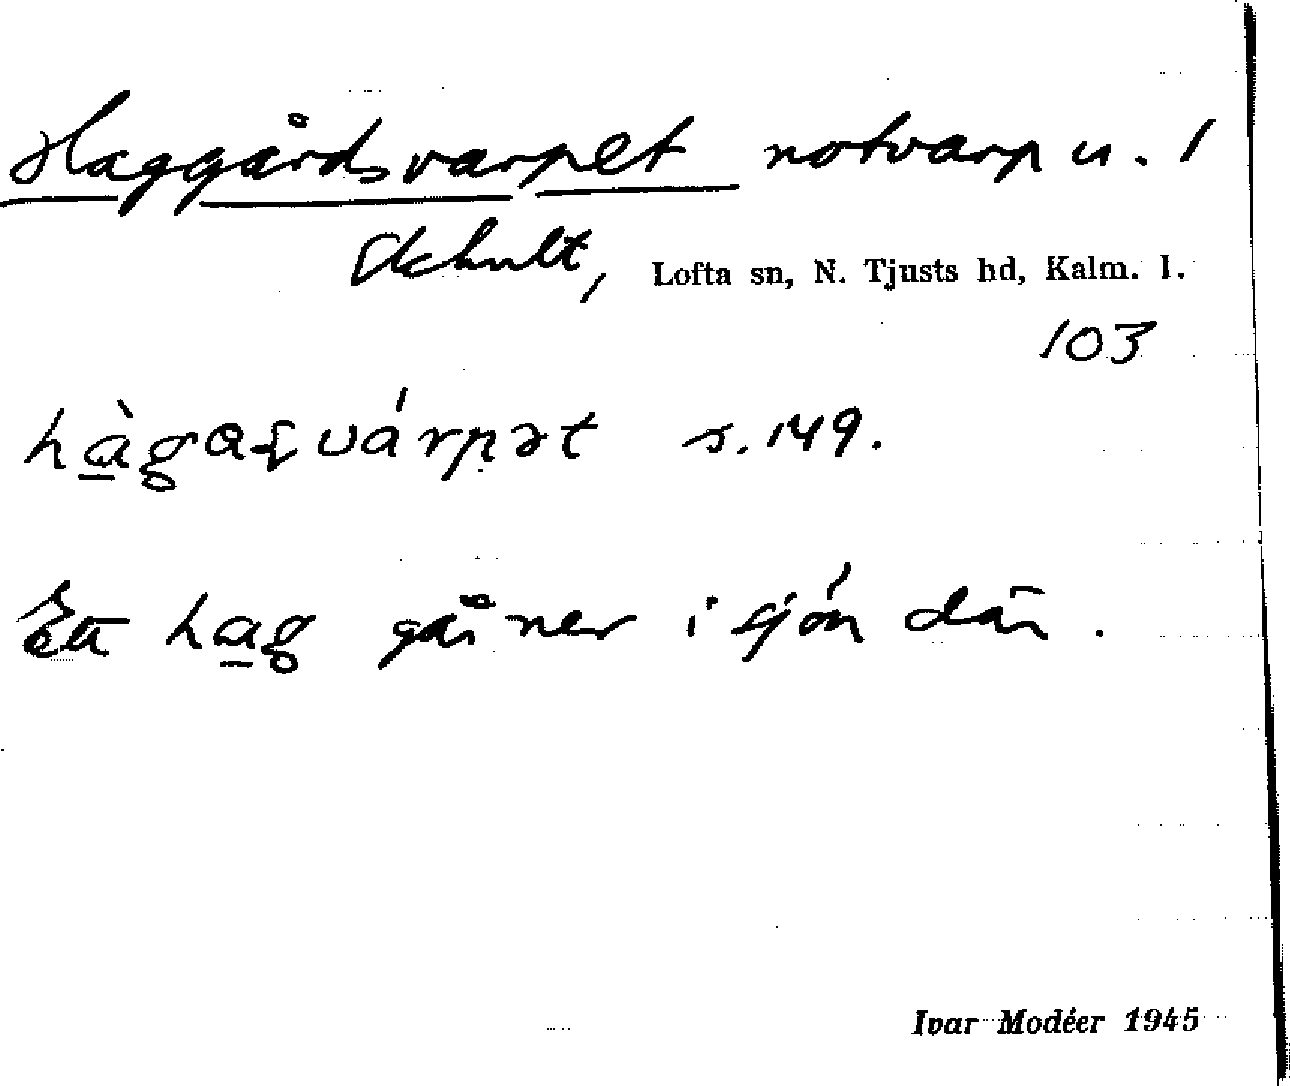 Haggårdsvarpet notvarp u. 1
Ekhult, Lofta sn, N. Tjusts hd, Kalm. l.
103
hàgaʂvárpət s. 149.
Ett hag går ner i sjön där.
Ivar Modéer 1945